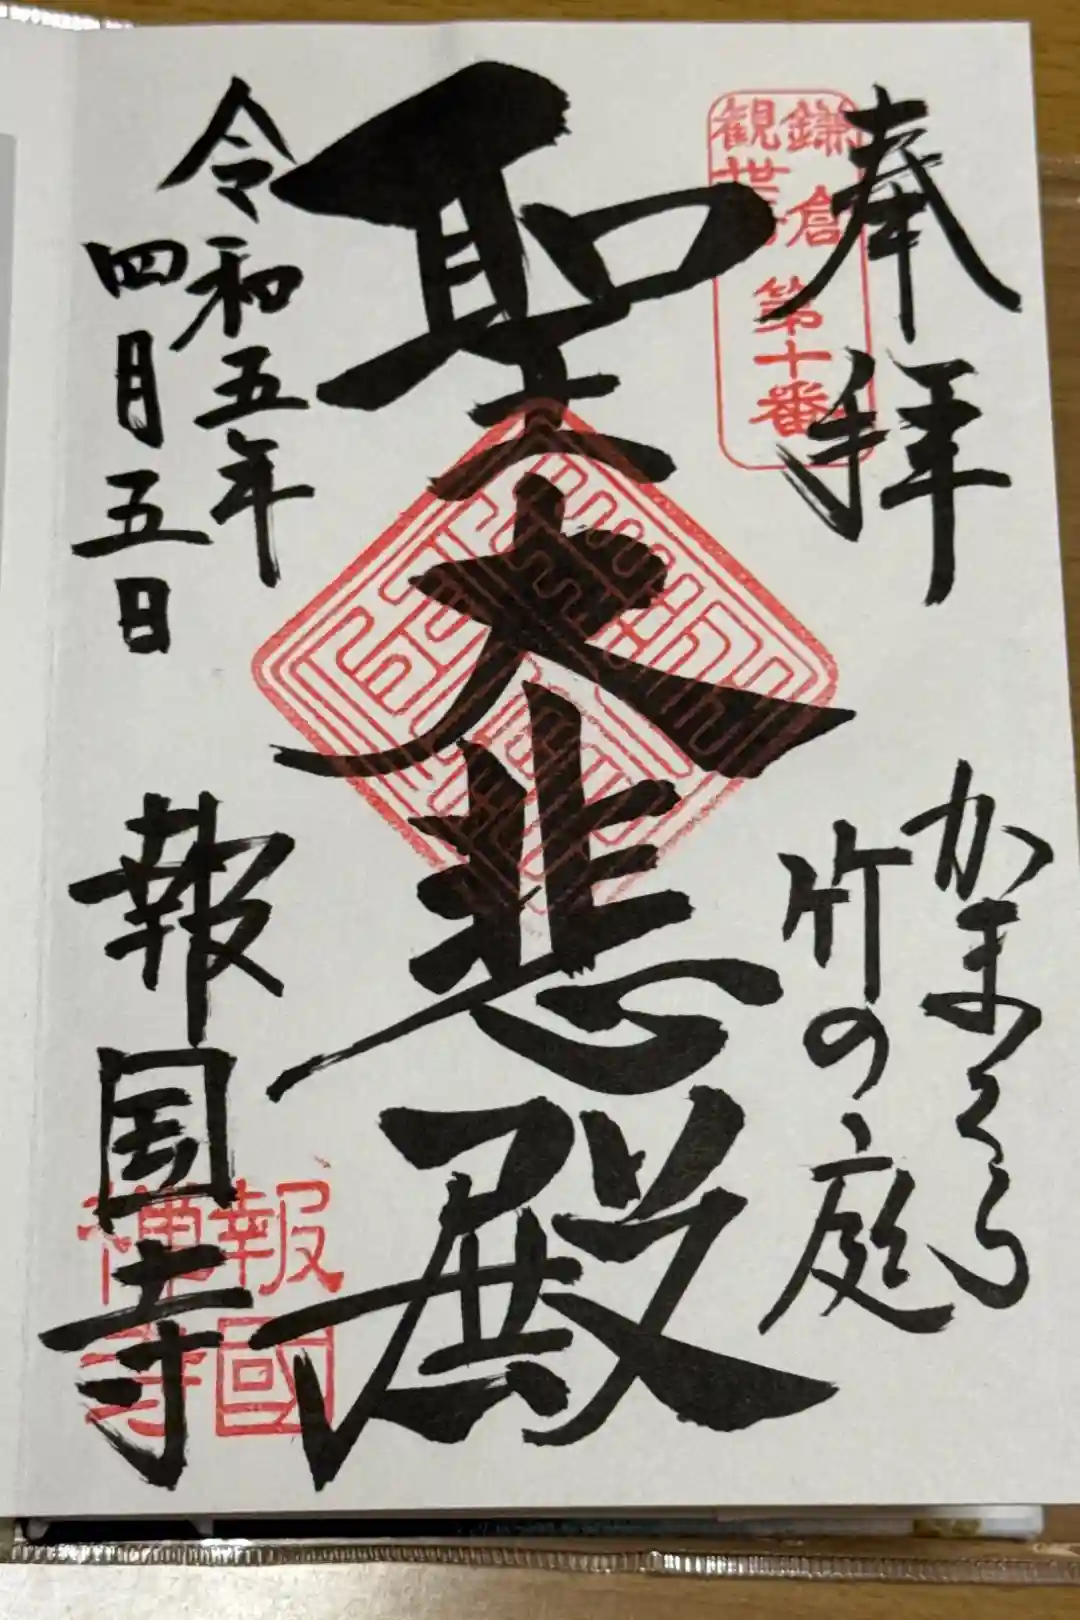 奉拝
鎌倉
観世音
第十番
かまくら
竹の庭
聖大悲殿
令和五年
四月五日
報国寺
報國
禅寺